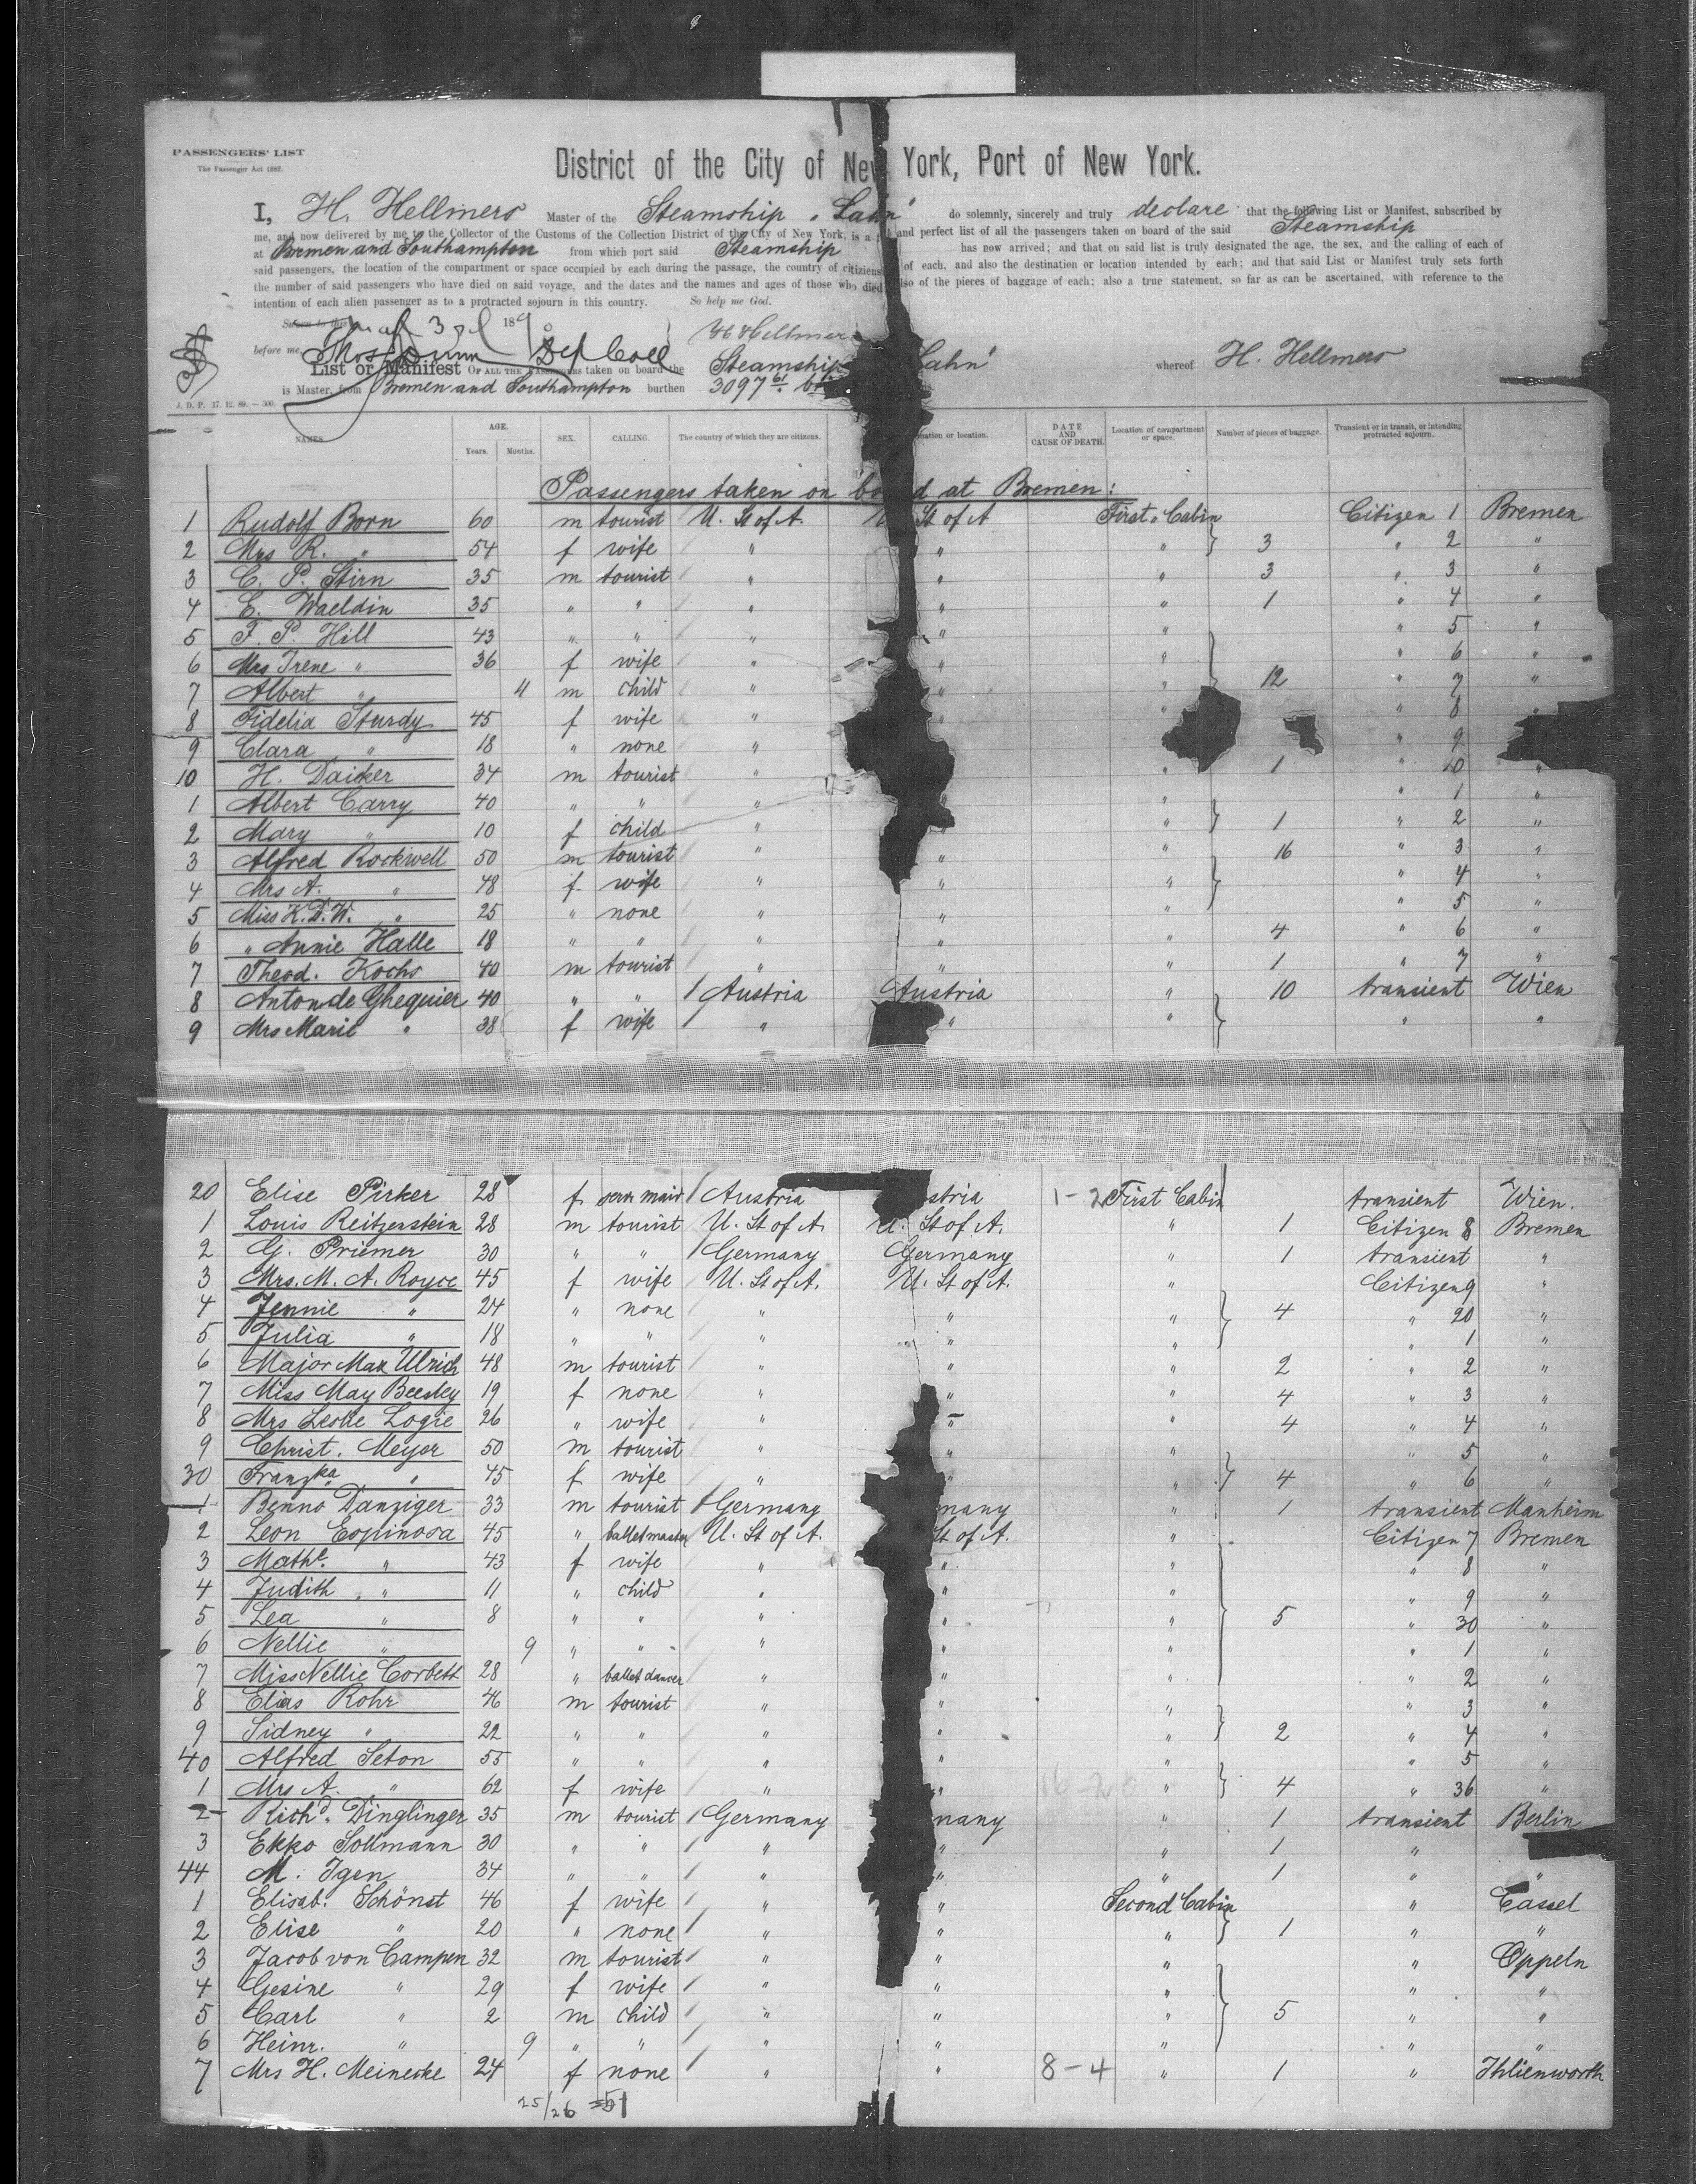 PASSENGERS' LIST
The Passenger Act 1882.
District of the City of New York, Port of New York.
I, H. Hellmers Master of the Steamship "Lahn" do solemnly, sincerely and truly declare that the following List or Manifest, subscribed by
me, and now delivered by me to the Collector of the Customs of the Collection District of the City of New York, is a and perfect list of all the passengers taken on board of the said Steamship
at Bremen and Southampton from which port said Steamship has now arrived; and that on said list is truly designated the age, the sex, and the calling of each of
said passengers, the location of the compartment or space occupied by each during the passage, the country of citiziens of each, and also the destination or location intended by each; and that said List or Manifest truly sets forth
the number of said passengers who have died on said voyage, and the dates and the names and ages of those who died also of the pieces of baggage of each; also a true statement, so far as can be ascertained, with reference to the
intention of each alien passenger as to a protracted sojourn in this country. So help me God.
Sworn to this 3 189
before me H Hellmers
List or Manifest OF ALL THE PASSENGERS taken on board the Steamship Lahn" whereof H. Hellmers
is Master, from Bremen and Southampton burthen 3097 61
J. D. P. 17. 12. 89. — 300.
NAMES. AGE. Years. Months. SEX. CALLING. The country of which they are citizens. nation or location. DATE AND CAUSE OF DEATH. Location of compartment or space. Number of pieces of baggage. Transient or in transit, or intending protracted sojourn.
Passengers taken on bo d at Bremen:
1 Rudolf Born 60 m tourist U. St of A. U St of A First Cabin Citizen 1 Bremen
2 Mrs R. " 54 f wife " " " } 3 " 2 "
3 C. P. Stirn 35 m tourist " " " 3 " 3 "
4 E. Waeldin 35 " " " " " 1 " 4 "
5 F. P. Hill 43 " " " " " " 5 "
6 Mrs Irene " 36 f wife " " " " 6 "
7 Albert " 4 m child " " " } 12 " 7 "
8 Fidelia Sturdy 45 f wife " " " 8
9 Clara " 18 " none " " 9
10 H. Daiker 34 m tourist " " 1 " 10 "
1 Albert Carry 40 " " " " " 1 "
2 Mary " 10 f child " " " } 1 " 2 "
3 Alfred Rockwell 50 m tourist " " " 16 " 3 "
4 Mrs A. " 48 f wife " " " } " 4 "
5 Miss K. D. W. " 25 " none " " " " 5 "
6 " Annie Halle 18 " " " " " 4 " 6 "
7 Theod. Kochs 40 m tourist " " " 1 " 7 "
8 Anton de Ghequier 40 " " Austria Austria " 10 transient Wien
9 Mrs Marie " 38 f wife " " " } " "
20 Elise Pirker 28 f serv. maid Austria stria 1-2 First Cabin transient Wien.
1 Louis Reitzenstein 28 m tourist U. St of A. U. St of A. " 1 Citizen 8 Bremen
2 G. Priemer 30 " " Germany Germany " 1 transient "
3 Mrs. M. A. Royce 45 f wife U. St of A. U. St of A. " Citizen 9 "
4 Jennie " 24 " none " " " } 4 " 20 "
5 Julia " 18 " " " " " " 1 "
6 Major Max Ulrich 48 m tourist " " " 2 " 2 "
7 Miss May Beesley 19 f none " " " 4 " 3 "
8 Mrs Leslie Logie 26 " wife " " " 4 " 4 "
9 Christ. Meyer 50 m tourist " " " " 5 "
30 Franzka " 45 f wife " " " } 4 " 6 "
1 Benno Danziger 33 m tourist Germany many " 1 transient Manheim
2 Leon Espinosa 45 " ballet master U. St of A. St of A. " Citizen 7 Bremen
3 Mathe. " 43 f wife " " " " 8 "
4 Judith " 11 " child " " " " 9 "
5 Lea " 8 " " " " " } 5 " 30 "
6 Nellie " 9 " " " " " " 1 "
7 Miss Nellie Corbett 28 " ballet dancer " " " " 2 "
8 Elias Rohr 46 m tourist " " " " 3 "
9 Sidney " 22 " " " " " } 2 " 4 "
40 Alfred Seton 55 " " " " " " 5 "
1 Mrs A. " 62 f wife " " 16-20 " } 4 " 36 "
2 Richd. Dinglinger 35 m tourist Germany many " 1 transient Berlin
3 Ekko Sollmann 30 " " " " " 1 "
44 M. Igen 34 " " " " " 1 " "
1 Elisab. Schönst 46 f wife " " Second Cabin " Cassel
2 Elise " 20 " none " " " } 1 " "
3 Jacob von Campen 32 m tourist " " " " Oppeln
4 Gesine " 29 f wife " " " " "
5 Carl " 2 m child " " " } 5 " "
6 Heinr. " 9 " " " " " " "
7 Mrs H. Meinecke 24 f none " " 8-4 " 1 " Ihlienworth
25/26 =51